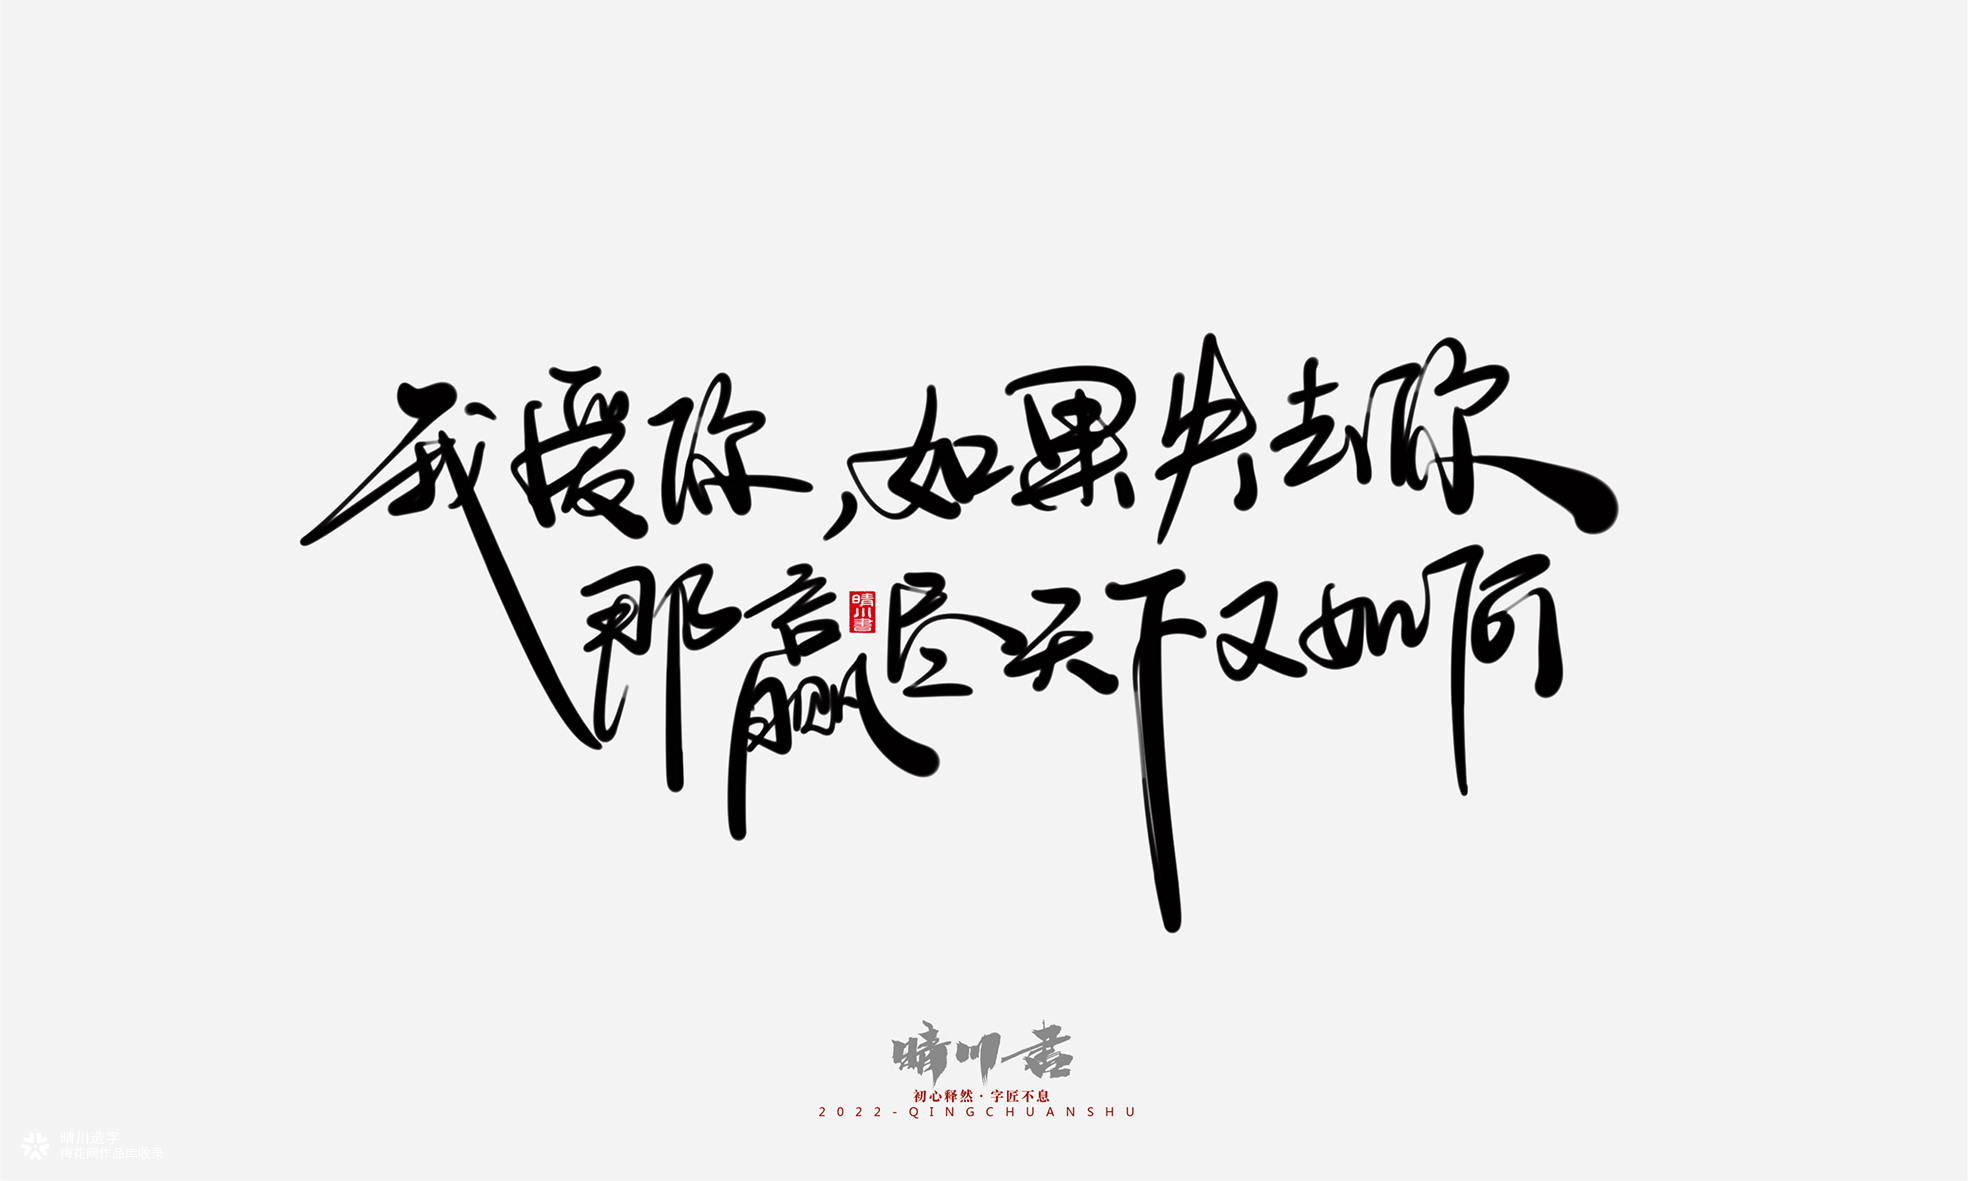 我爱你，如果失去你
那赢尽天下又如何
晴川書
晴川书
初心释然·字匠不息
2022-QINGCHUANSHU
晴川造字
梅花网作品库收录